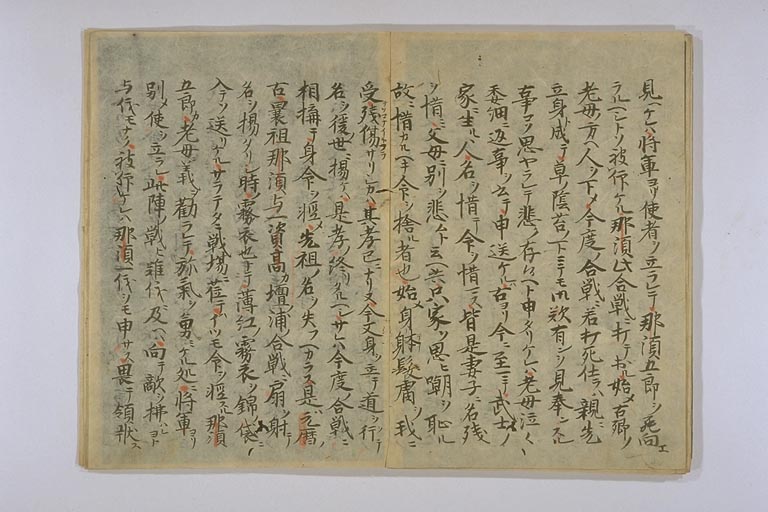 見ヘケレハ將軍ヨリ使者ヲ立ラレテ那須五郎ヲ罷向エ
テルヘシトソ被仰ケル那須此合戰ニ打テ出ル始メ古郷ノ
老母ノ方ヘ人ヲ下メ今度ノ合戰ニ若打死仕ラハ親ニ先
立身ト成テ草ノ陰苔ノ下ミテモ御歎有ンヲ見奉ンスル
事コソ思ヤラレテ悲ク存候ヘト申タリケレハ老母泣々
委細ニ返事ヲ書テ申送ケルハ古ヨリ今ニ至ニテ武士ノ
家ニ生ルヽ人名ヲ惜テ命ヲ惜ス皆是妻子ニ名残
ヲ惜ミ父母ニ別ヲ悲ムト云共只家ヲ思ヒ嘲ヲ恥ル
故ニ惜カルヘキ命ヲ捨ル者也始身躰髮膚ヲ我ニ
受殘傷サリシカハ其孝已ニナリヌ今又身ヲ立テ道ヲ行テ
名ヲ後世ニ揚ケハ是孝ノ終リタルヘシサレハ今度ノ合戰ニ
相構テ身命ヲ輕メ先祖ノ名ヲ失フヘカラス是ハ元曆ノ
古曩祖那須与一資高カ壇浦ノ合戰ニ扇ヲ射テ
名ヲ揚タリシ時ノ霧衣也トテ薄紅ノ霧衣ヲ錦ノ袋ニ
入テソ送リケルサラテタニ戰塲ニ莅テイツモ命ヲ輕スル那須
五郎カ老母ニ義ヲ勸ラレテ弥氣ヲ勇ケル処ニ將軍ヨリ
別メ使ヲ立ラレ此陣ノ戰ヒ難儀ニ及ハ向テ敵ヲ拂ヘト
与儀モナク被仰ケレハ那須一儀ヲモ申サス畏テ領狀ス